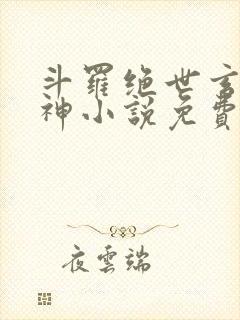 斗羅絕世玄
神小說免費
夜雲端